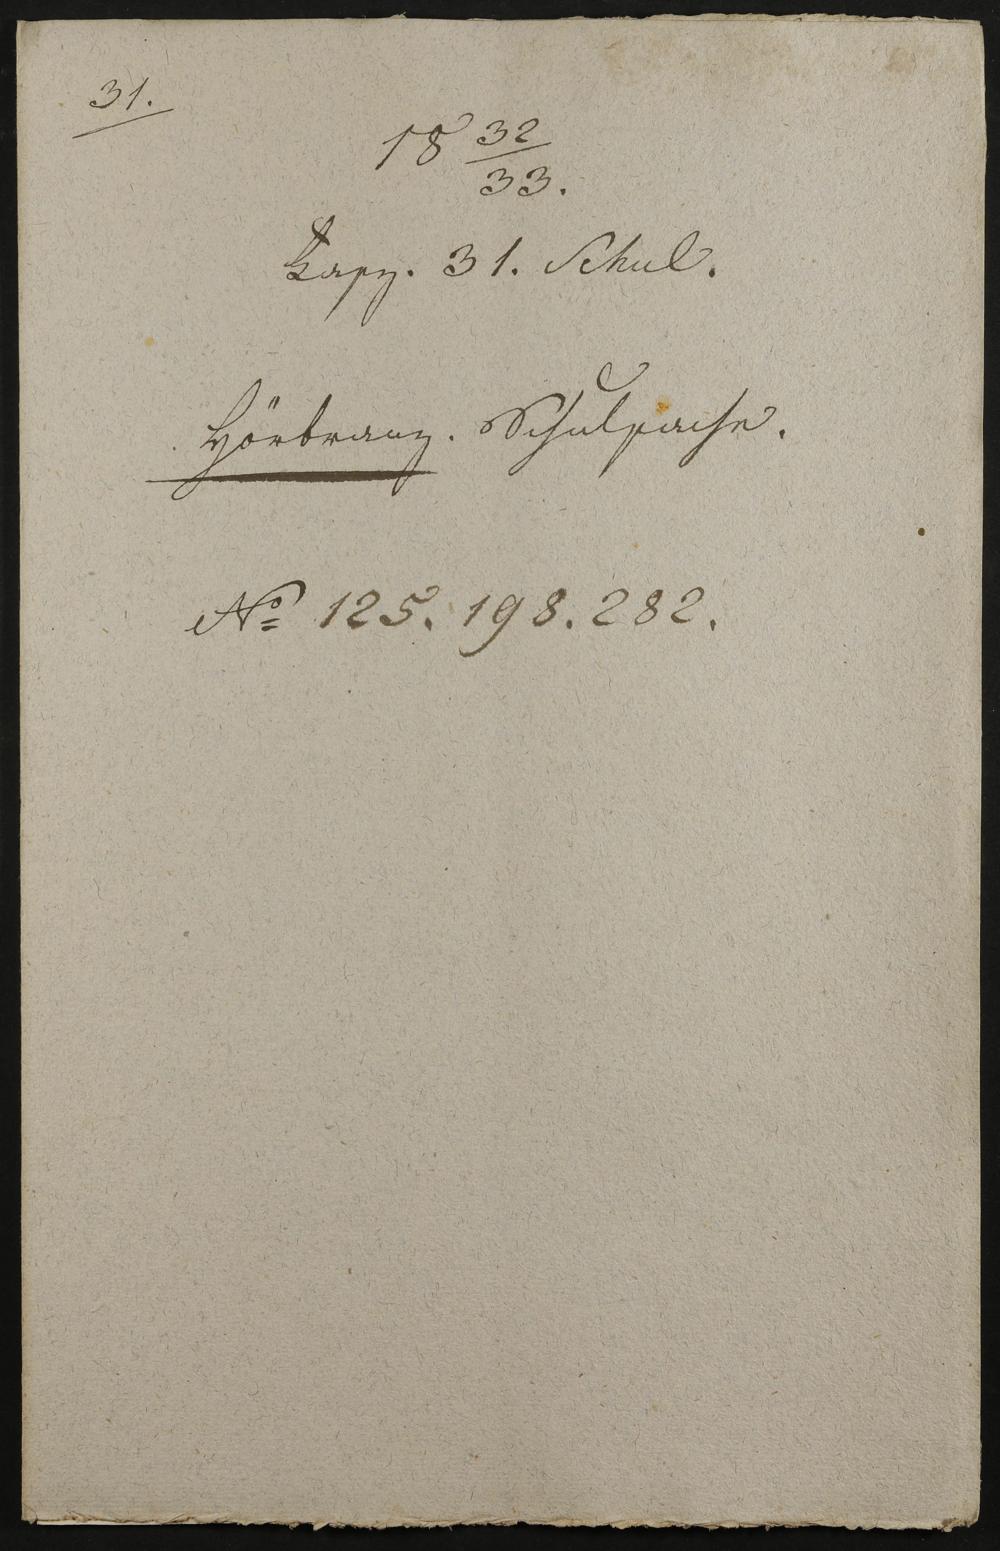 31.
18 32/33.
Fasz. 31. Schul.
Hörbranz. Schulsache.
No 125. 198. 282.